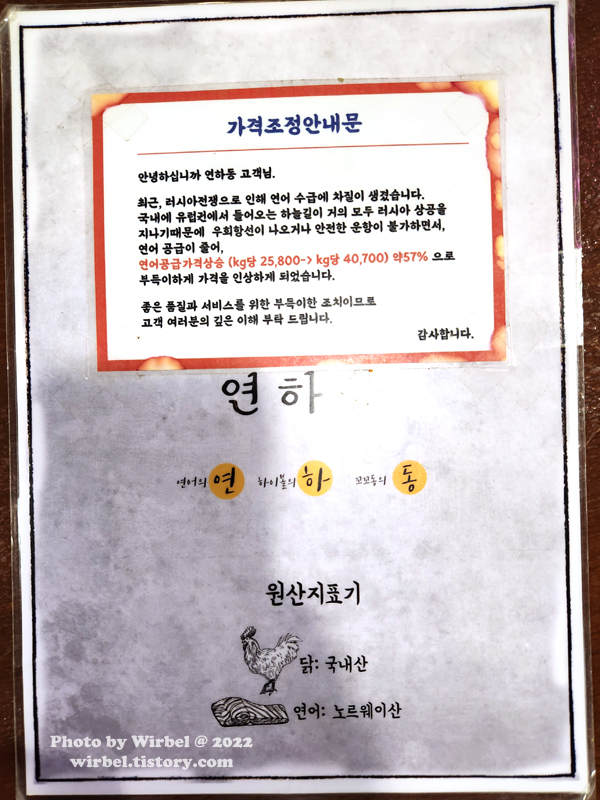 가격조정안내문
안녕하십니까 연하동 고객님.
최근, 러시아전쟁으로 인해 연어 수급에 차질이 생겼습니다.
국내에 유럽권에서 들어오는 하늘길이 거의 모두 러시아 상공을
지나기때문에 우회항선이 나오거나 안전한 운항이 불가하면서,
연어 공급이 줄어,
연어공급가격상승 (kg당 25,800-> kg당 40,700) 약57% 으로
부득이하게 가격을 인상하게 되었습니다.
좋은 품질과 서비스를 위한 부득이한 조치이므로
고객 여러분의 깊은 이해 부탁 드립니다.
감사합니다.
연하
연어의 연 하이볼의 하 꼬꼬동의 동
원산지표기
닭: 국내산
연어: 노르웨이산
Photo by Wirbel @ 2022
wirbel.tistory.com